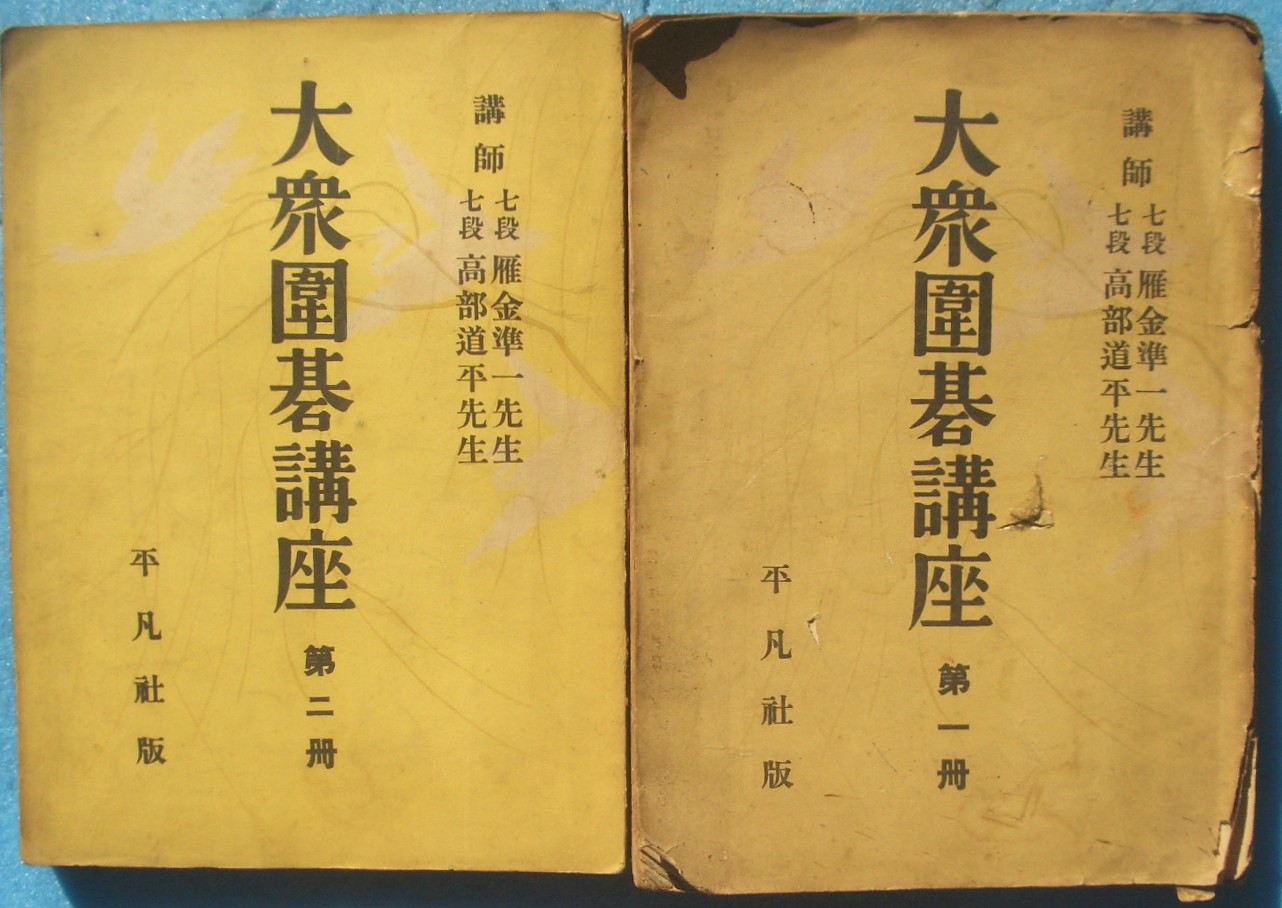 講師
七段 雁金準一先生
七段 高部道平先生
大衆圍碁講座 第一册
平凡社版
講師
七段 雁金準一先生
七段 高部道平先生
大衆圍碁講座 第二册
平凡社版